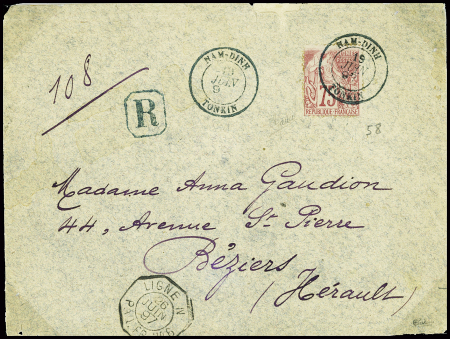 NAM-DINH
TONKIN
NAM-DINH
19
TONKIN
75
REPUBLIQUE FRANCAISE
108
R
58
Madame Anna Gaudion
44, Avenue St Pierre
Béziers
(Hérault)
LIGNE N
26
JUIN